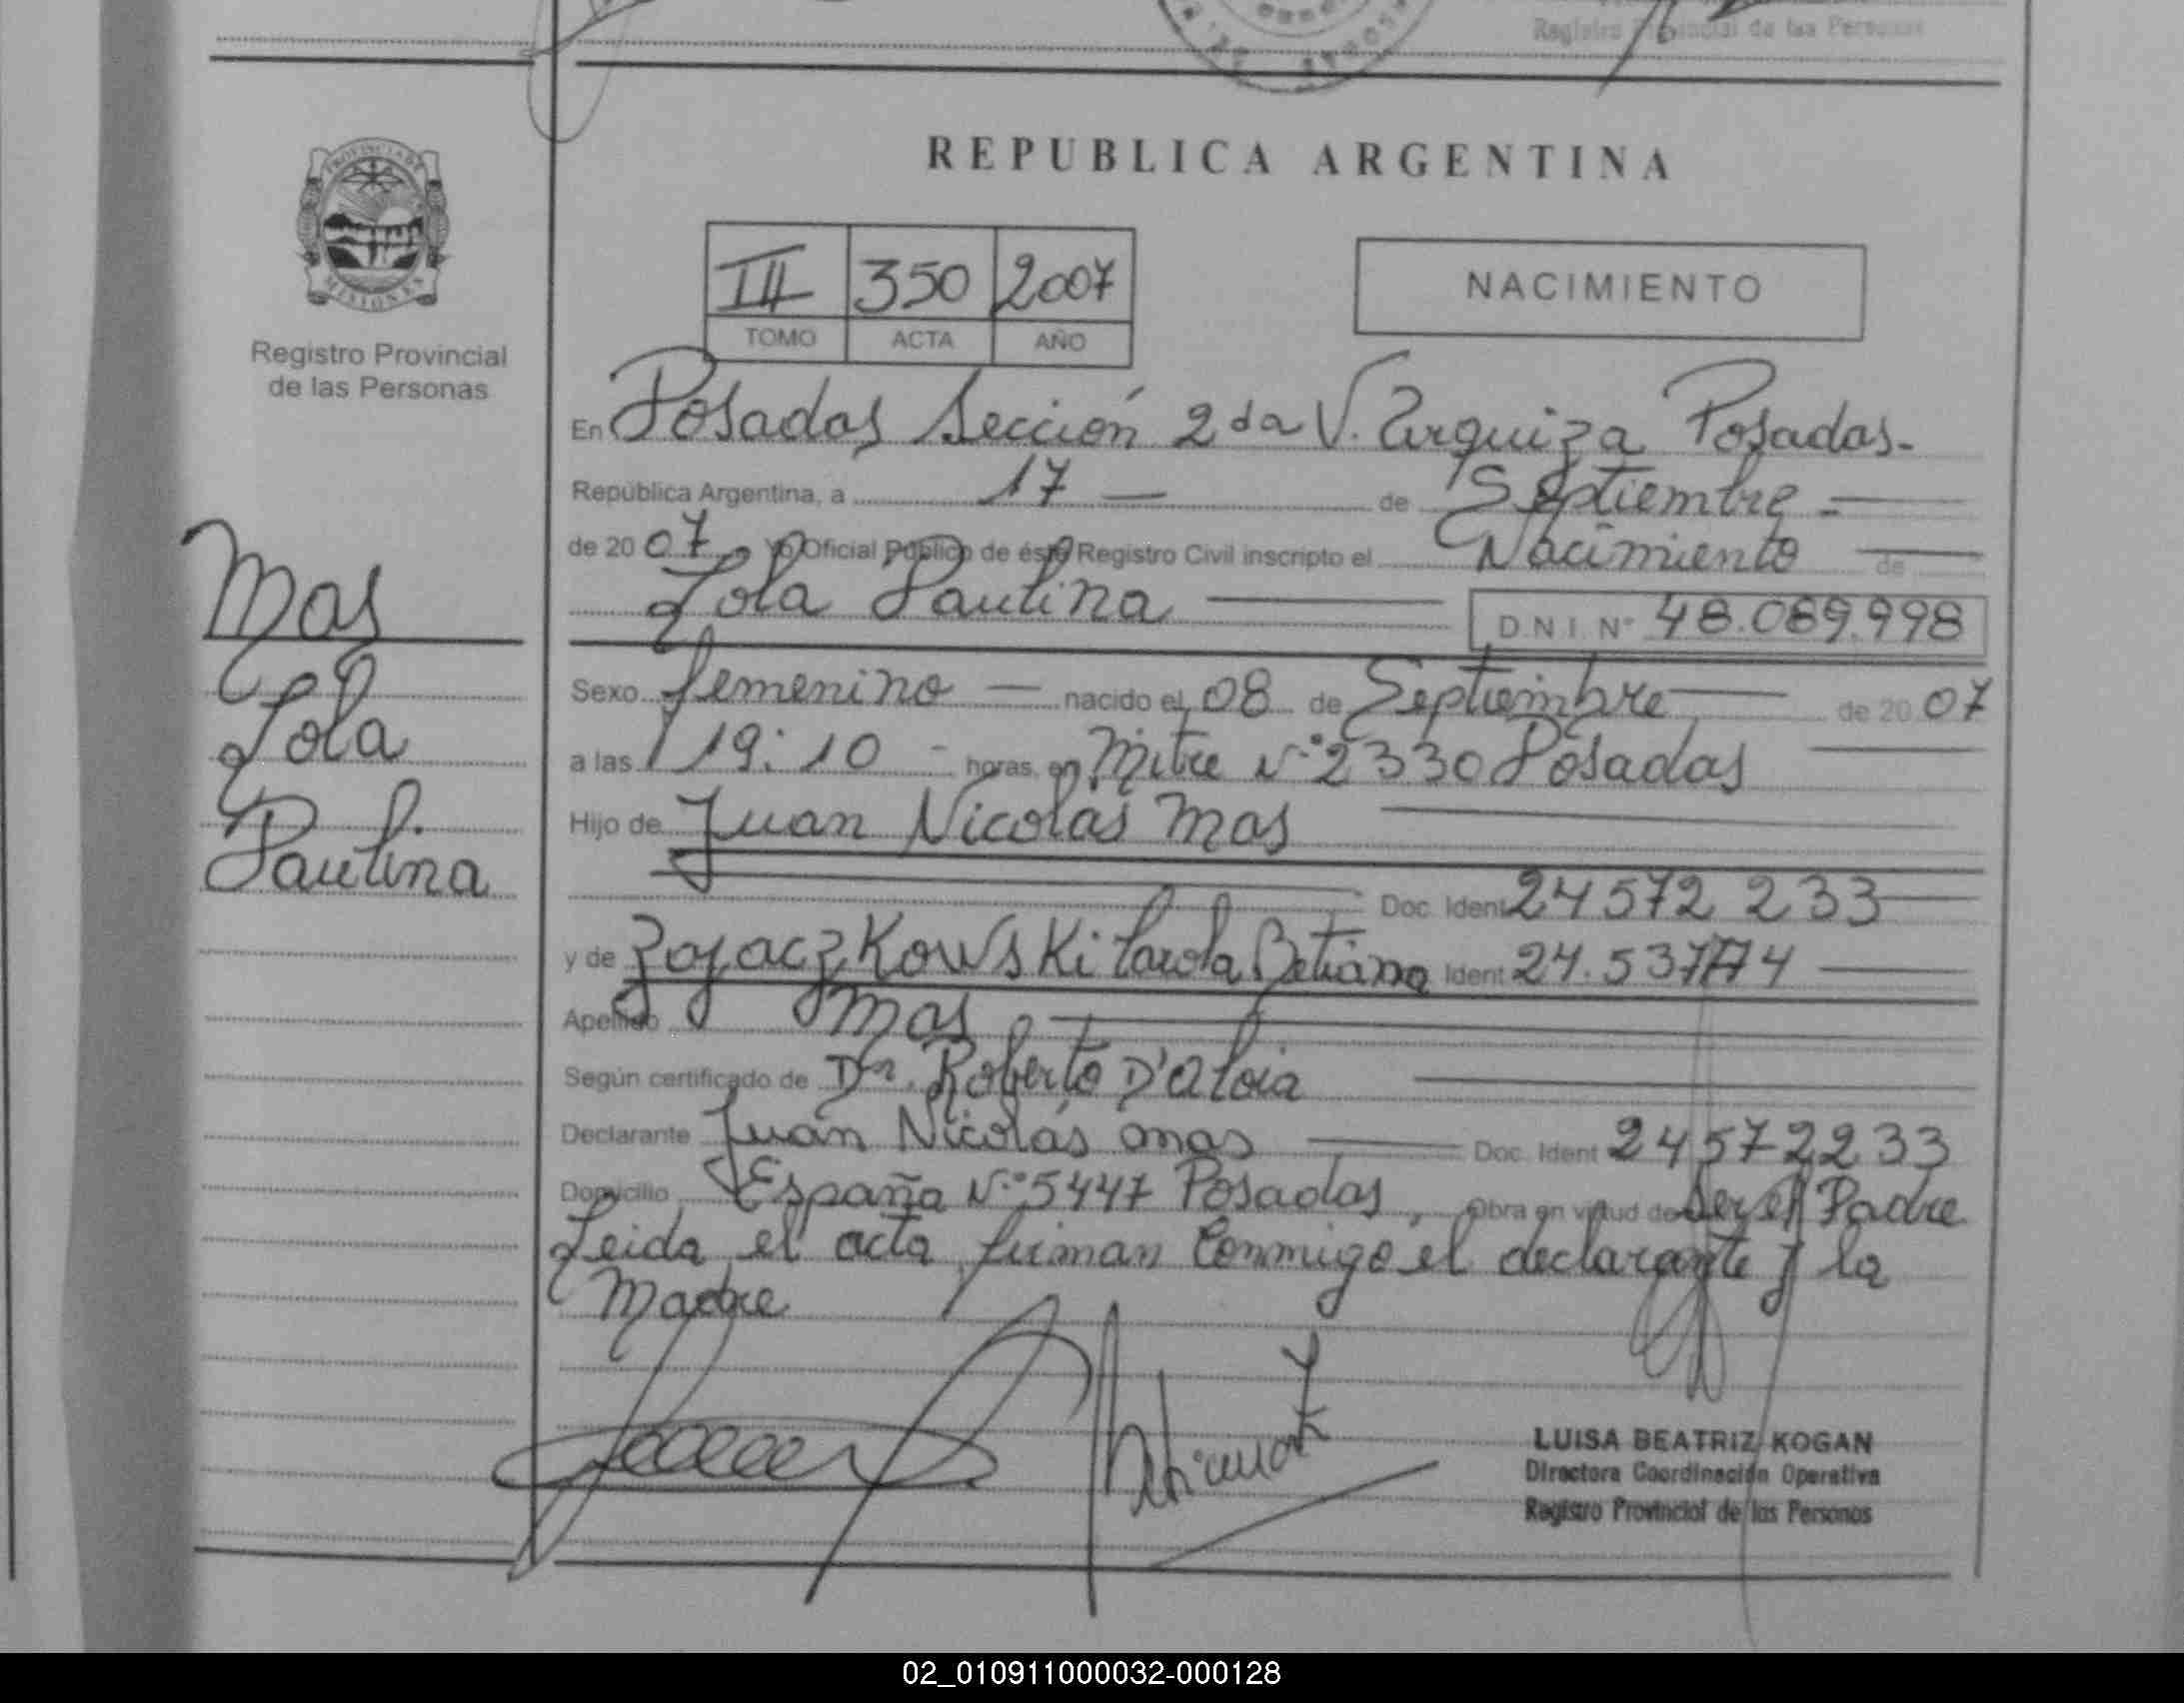 Registro Provincial de las Personas
REPUBLICA ARGENTINA
PROVINCIA DE
MISIONES
Registro Provincial
de las Personas
III 350 2007
TOMO ACTA AÑO
NACIMIENTO
En Posadas Sección 2da V. Urquiza Posadas.
República Argentina, a 17 — de Septiembre
de 2007, Yo Oficial Público de éste Registro Civil inscripto el Nacimiento de
Lola Paulina D.N.I. Nº 48.089.998
Mas
Lola
Paulina
Sexo femenino — nacido el 08 de Septiembre de 2007
a las 19:10 - horas, en Mitre Nº 2330 Posadas
Hijo de Juan Nicolás Mas
Doc. Ident 24572 233
y de Zojaczkowski Carola Betiana Ident 24.537
Apellido Mas
Según certificado de Dr. Roberto D'Aloia
Declarante Juan Nicolás Mas Doc. Ident 24572233
Domicilio España Nº 5447 Posadas, Obra en virtud de Ser el Padre
Leida el acta firman Conmigo el declarante y la
Madre
LUISA BEATRIZ KOGAN
Directora Coordinación Operativa
Registro Provincial de las Personas
02_010911000032-000128